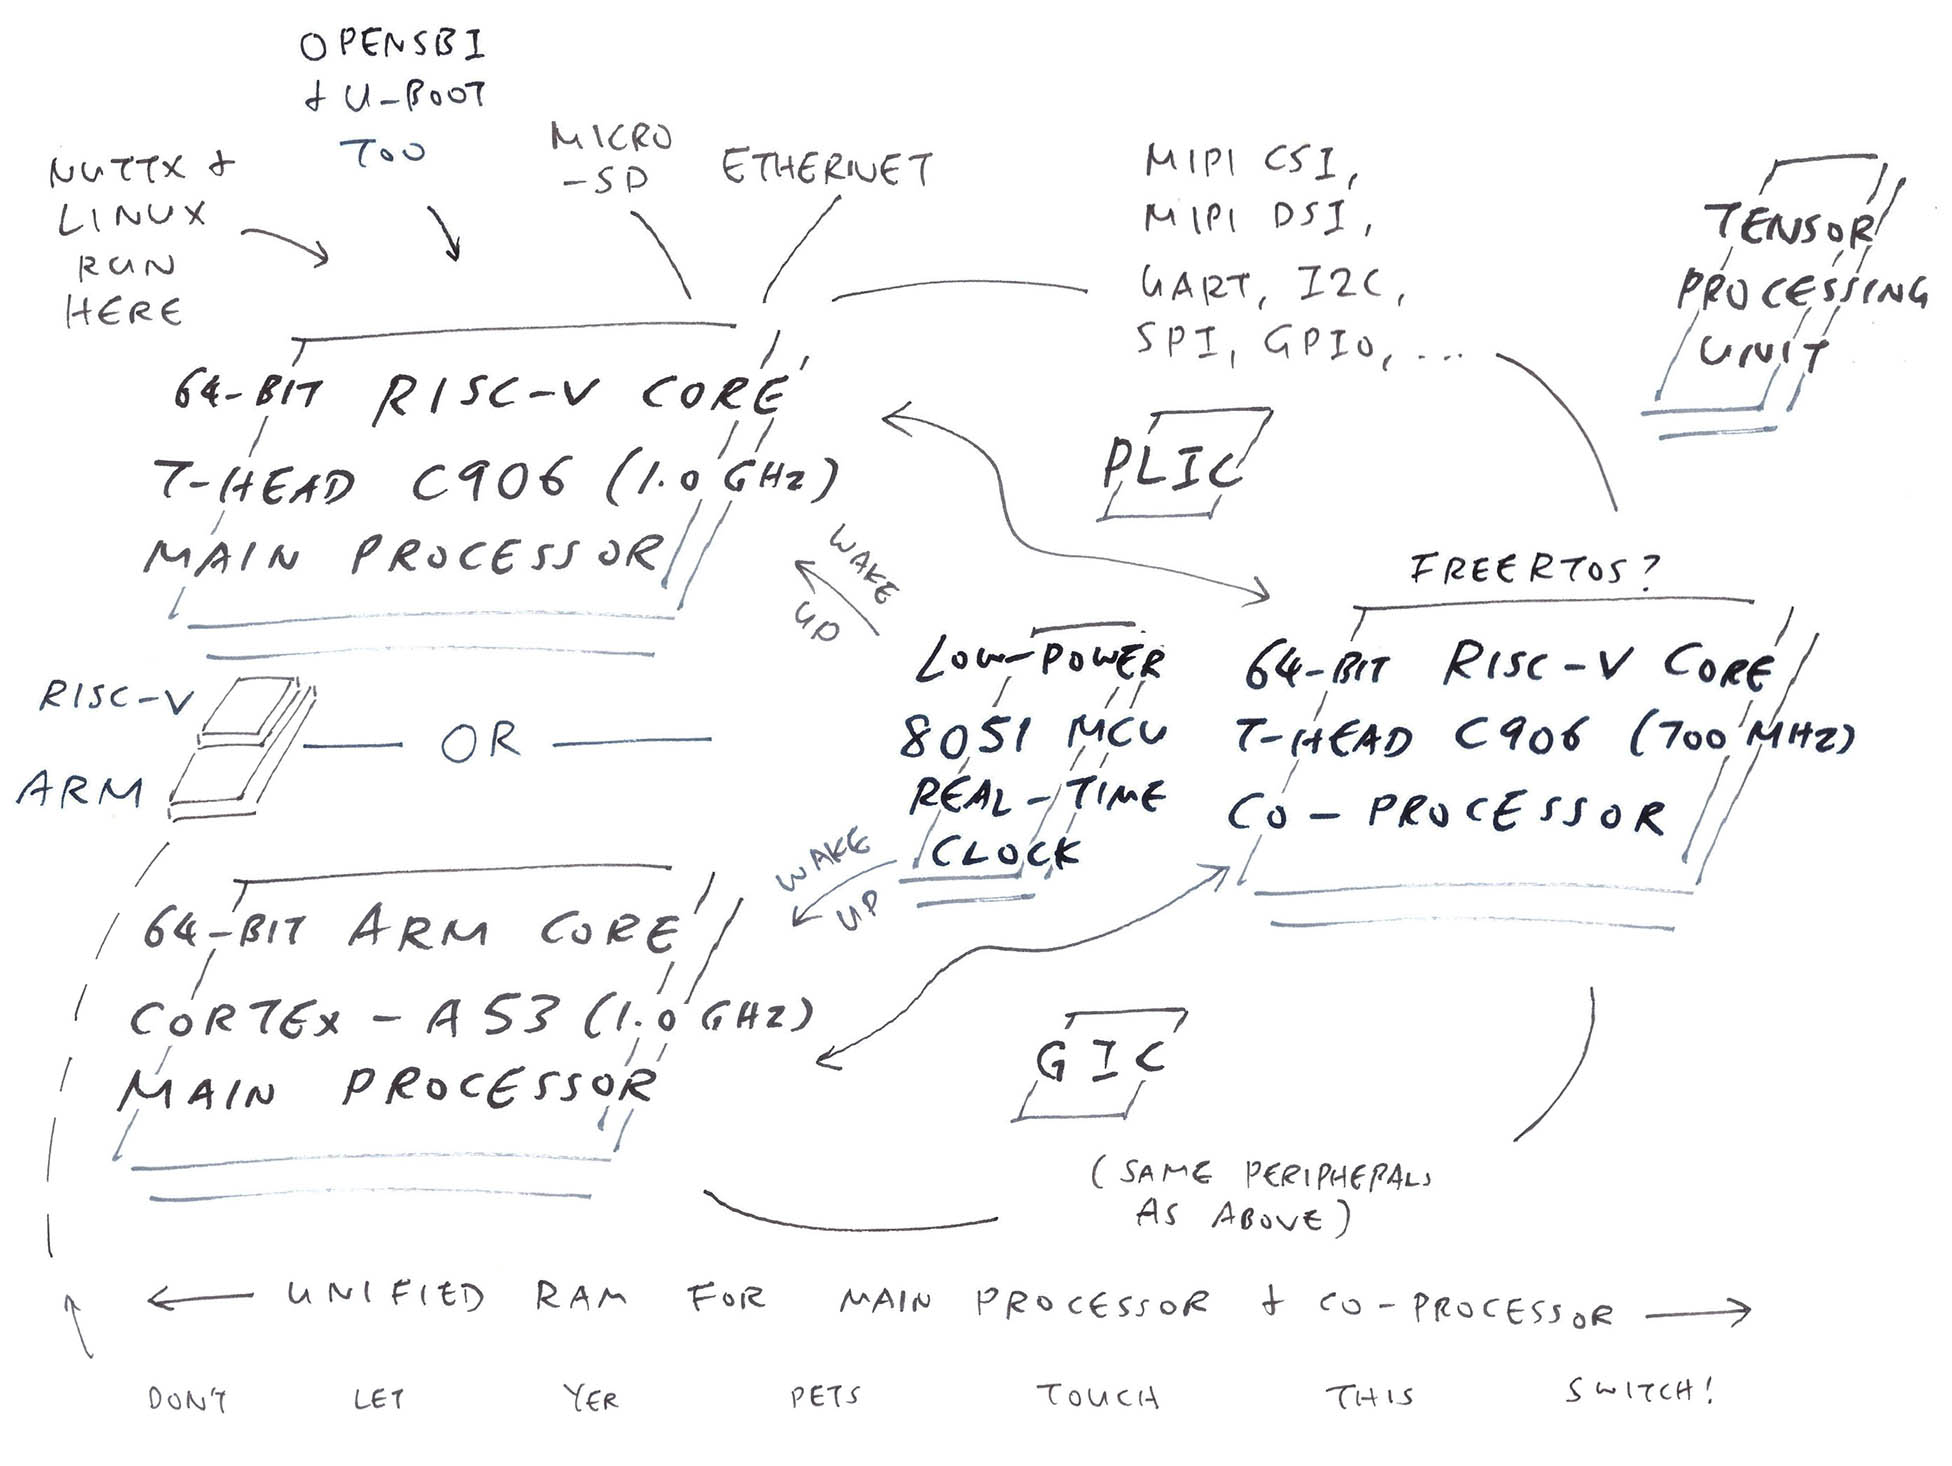 OPENSBI
+ U-BOOT
TOO
NUTTX +
LINUX
RUN
HERE
MICRO
-SD
ETHERNET
MIPI CSI,
MIPI DSI,
UART, I2C,
SPI, GPIO, ...
TENSOR
PROCESSING
UNIT
64-BIT RISC-V CORE
T-HEAD C906 (1.0 GHz)
MAIN PROCESSOR
PLIC
WAKE
UP
FREERTOS?
LOW-POWER
8051 MCU
REAL-TIME
CLOCK
64-BIT RISC-V CORE
T-HEAD C906 (700 MHz)
CO-PROCESSOR
RISC-V
OR
ARM
WAKE
UP
64-BIT ARM CORE
CORTEX-A53 (1.0 GHz)
MAIN PROCESSOR
GIC
(SAME PERIPHERALS
AS ABOVE)
UNIFIED RAM FOR MAIN PROCESSOR + CO-PROCESSOR
DON'T LET YER PETS TOUCH THIS SWITCH!